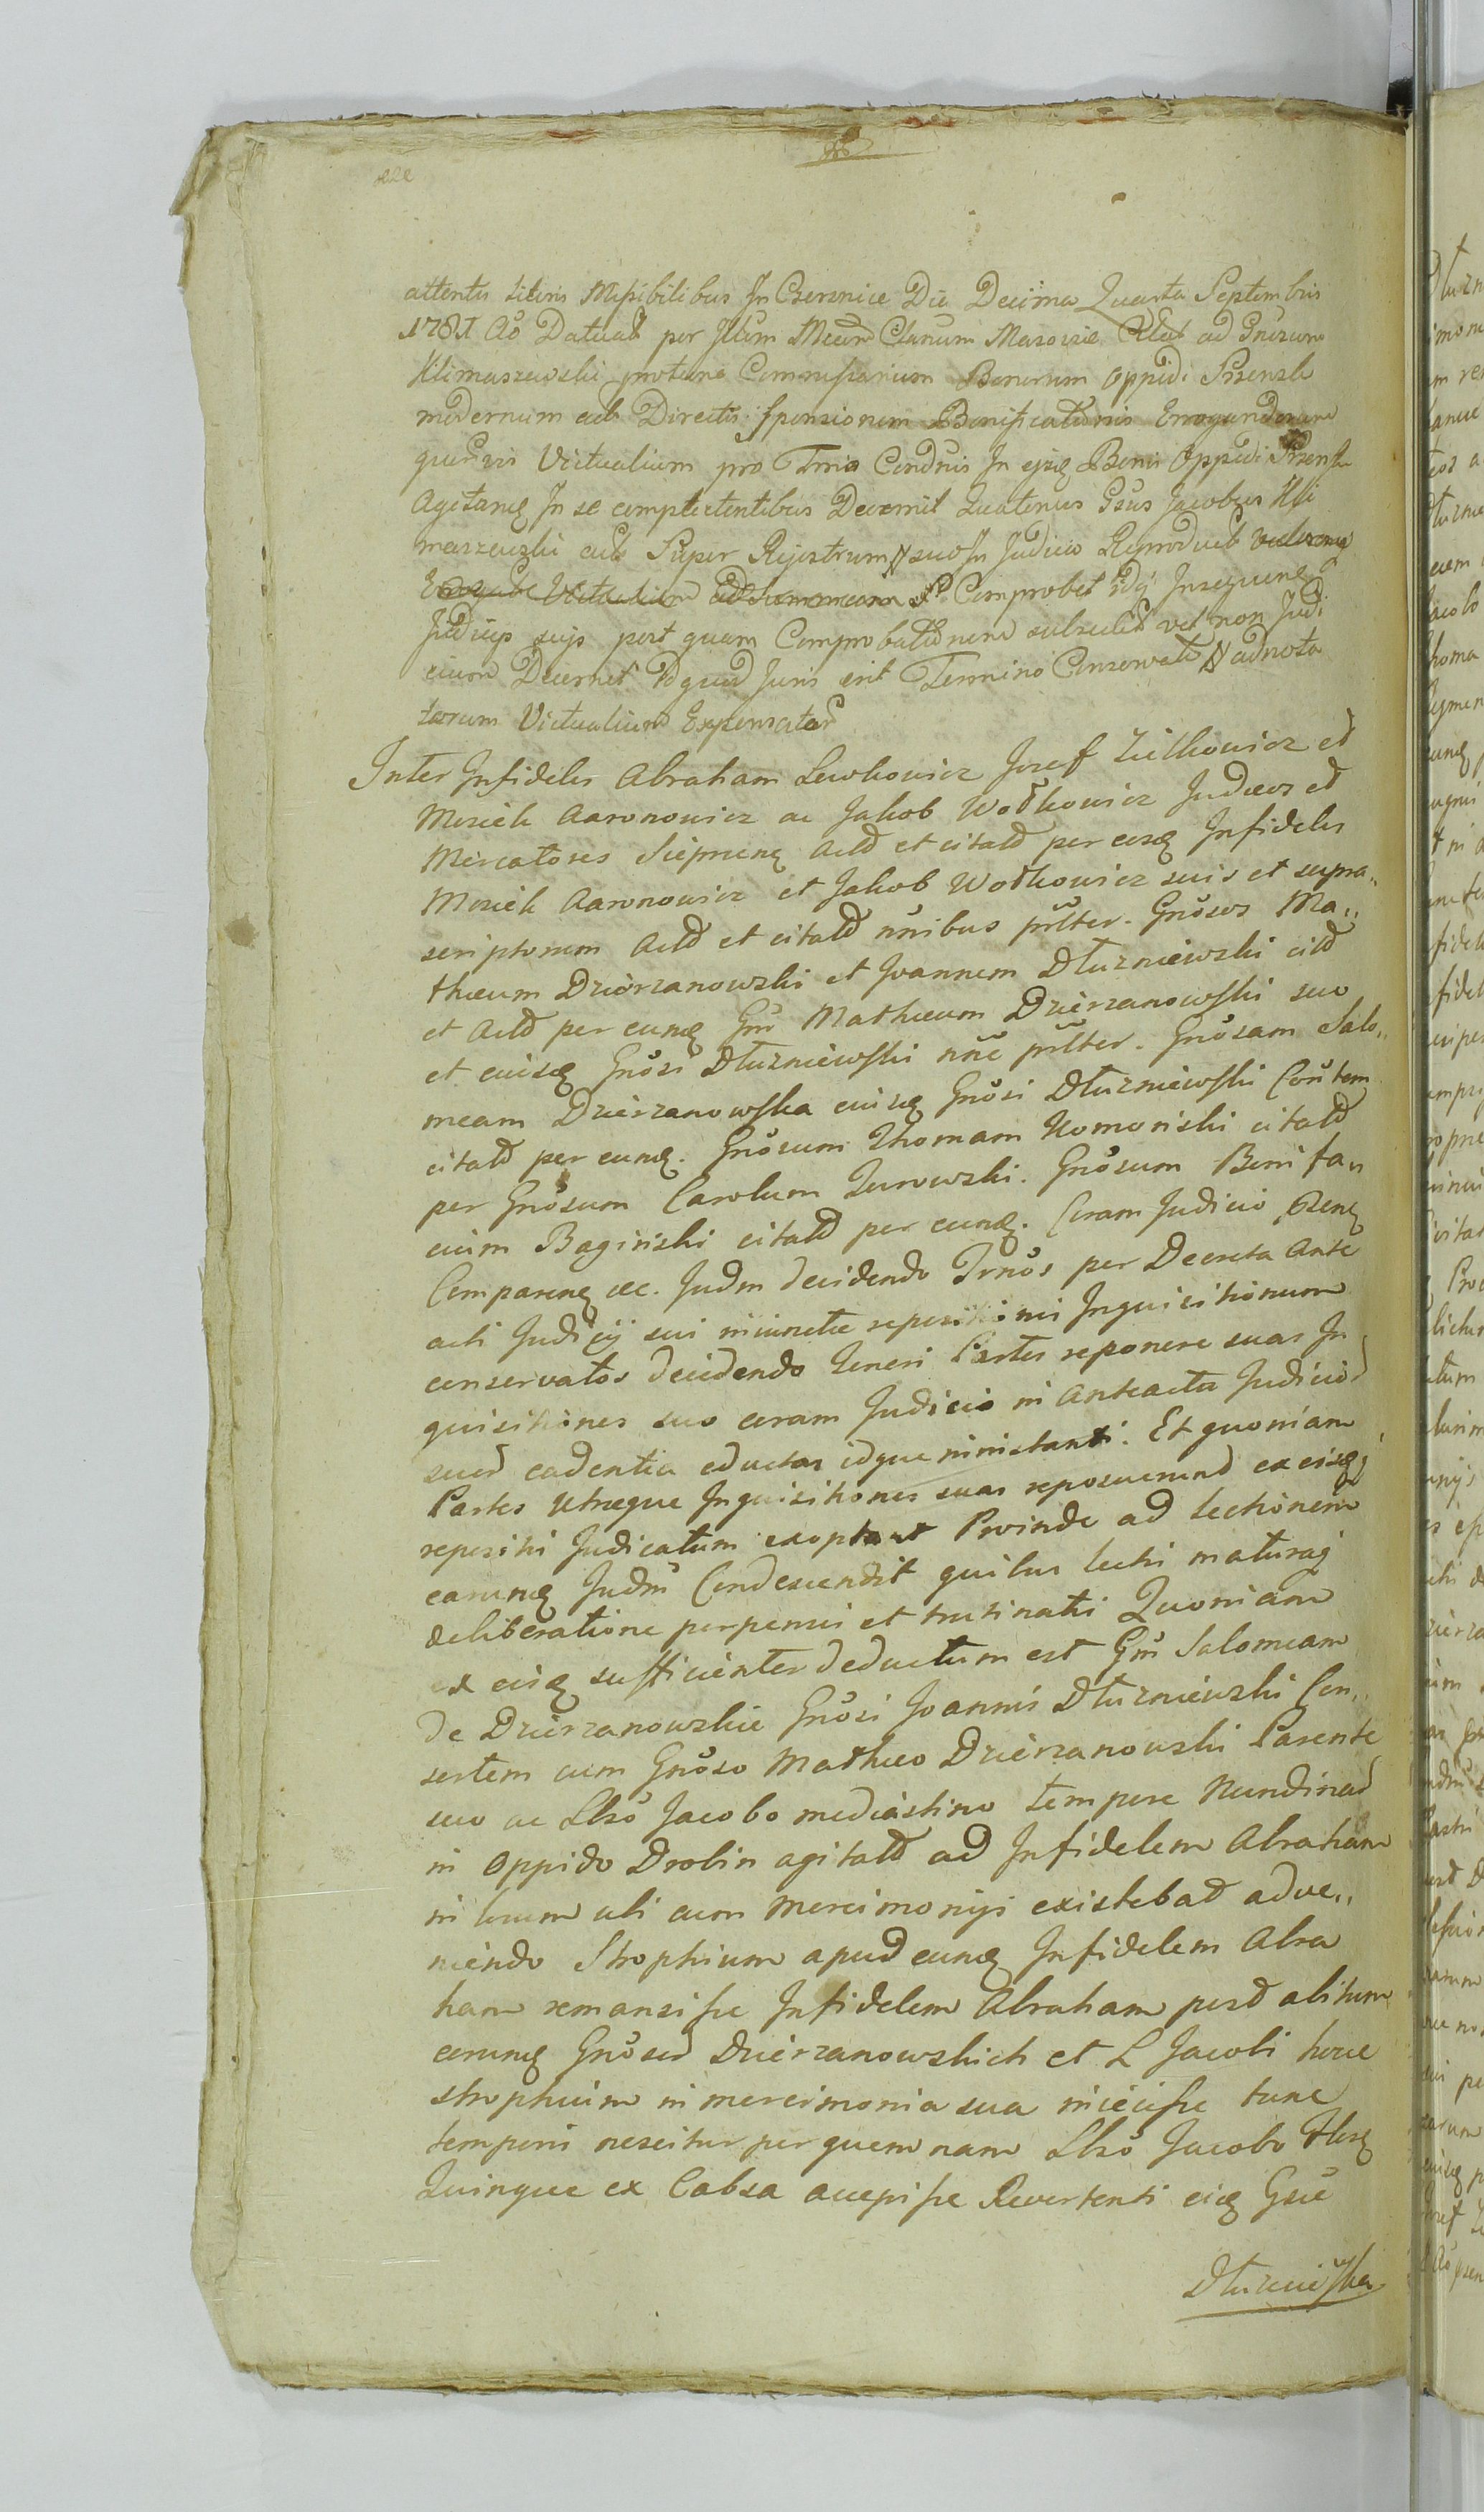 attentis Literis Missibilibus In Czerwnice Die Decima Quarta Septembris
1781 Aõ Datuab per Illum Clarum Masoviæ ad Gnosum
Klimaszewski protunc Commissarium Bonorum Oppidi Przensk
modernum acb Directis Sponsionem Bonificationis Errogandorum
quorvis Victualium pro Tmis Condnis In ejsq Bonis Oppidi
Agitanq In se complectentibus Decernit Quatenus Gsus Jacobus Kli
maszewski acb Super Rejestrum suo In Judicio Reproducb
Victualium Comprobet Idq Insequenq
Judicijs sujs post quam Comprobationem subsecut vel non Judi
cium Decernet Id quod Juris erit Termino Conservato adnota
torum Victualium Expensatar
Inter Infideles Abraham Lewkowicz Josef Zielkowicz et
Mosiek Aaronowicz ac Jakob Wołkowicz Judæos et
Mercatores Sieprenq Actd et citatd per eosq Infideles
Mosiek Aaronowicz et Jakob Wołkowicz suis et supra„
scriptorum Actd et citatd nñibus pñlter. Gnõsos Ma„
thæum Dzierzanowski et Joannem Dłuzniewski citd
et Actd per eunq Gñm Mathæum Dzierzanowski suo
et eiusq Gnõsi Dłuzniewski nñe pñlter. Gnõsam Salo„
meam Dzierzanowska eiusq Gnõsi Dłuzniewski Coñtem
citatd per eunq. Gnõsum Thomam Komorski citatd
per Gnõsum Carolum Zurowski. Gnõsum Bonifa„
cium Baginski citatd per eunq. Coram Judicio Psenq
Comparenq &c. Judm decidendo Trnõs per Decreta Ante
acti Judicij sui iniunctæ repositionis Inquisitionum
conservatos decidendo Teneri Partes reponere suas In
quisitiones suo coram Judicio in Anteacta Judicior
suor cadentia eductas idque ninistanti. Et quoniam
Partes Utræque Inquisitiones suas reposuerund ex eisq
repositi Judicatum exoptant Proinde ad lectionem
earunq Judm̃ Condescendit quibus lectis maturaq
deliberatione perpensis et trutinatis Quoniam
ex eisq sufficienter deductum est Gm̃ Salomeam
de Dzierzanowskie Gnõsi Joannis Dłuzniewski Con„
sortem cum Gnõso Mathæo Dzierzanowski Parente
suo ac Lbsõ Jacobo mediastino tempore Nundinar
in Oppido Drobin agitatd ad Infidelem Abraham
in locum ubi cum Mercimonijs existebat adve„
niendo Strophium apud eunq Infidelem Abra
ham remansisse Infidelem Abraham post abitum
eorunq Gnõsor Dzierzanowskich et L Jacobi hocce
strophium in mercimonia sua iniecisse tunc
temporis nescitur per quemnam Lbsõ Jacobo flosq
Quinque ex Cabsa accepisse Revertenti eiq Gsæ
Dłuzniewska